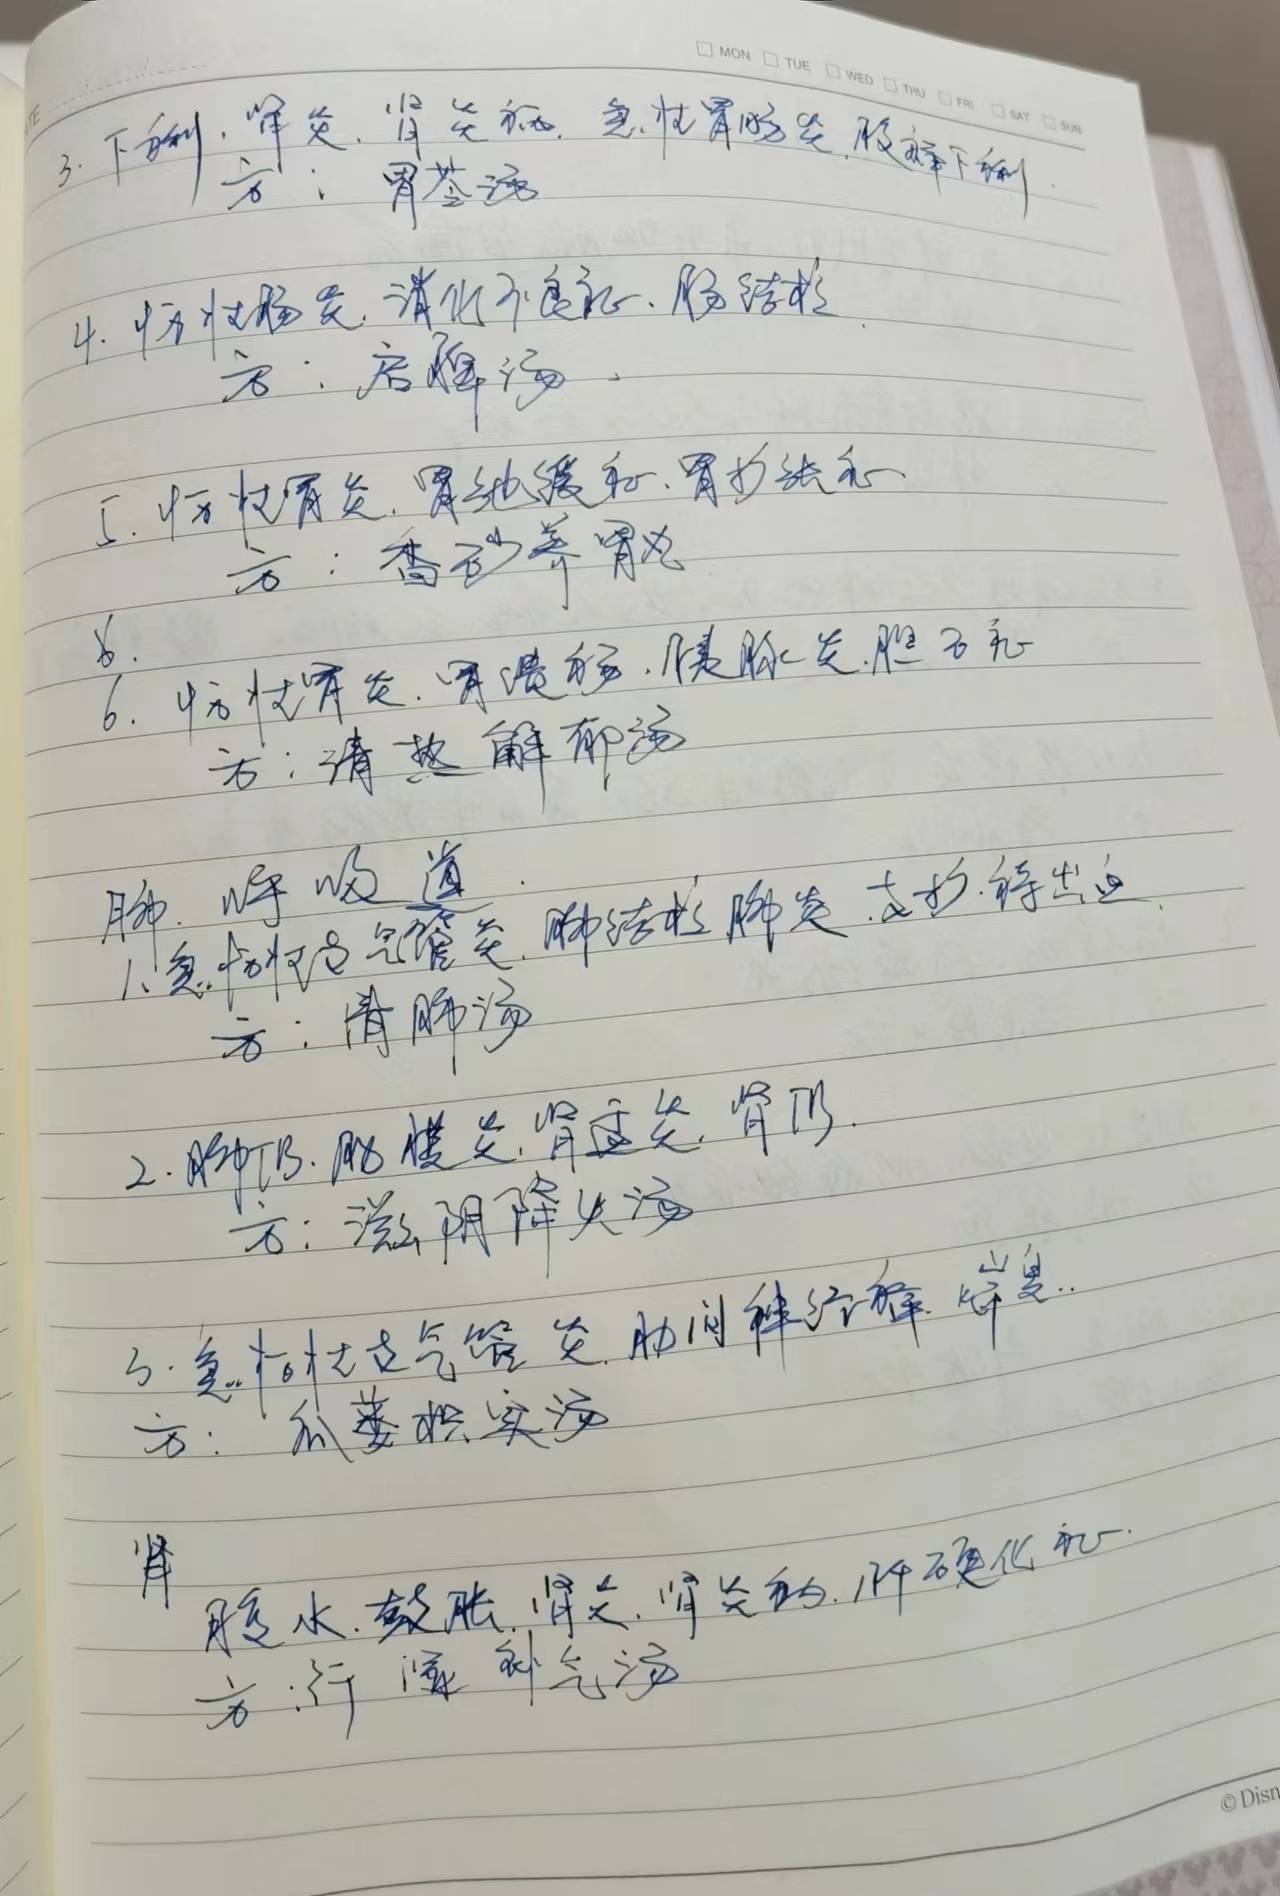 MON TUE WED THU FRI SAT SUN
3. 下痢、肾炎、肾炎病、急性胃肠炎、腹痛下痢.
方：胃苓汤
4. 慢性肠炎、消化不良症、肠结核
方：启脾汤
5. 慢性胃炎、胃弛缓症、胃扩张症
方：香砂养胃丸
6.
6. 慢性胃炎、胃溃疡、胰脉炎、胆石症
方：清热解郁汤
肺、呼吸道
1、急、慢性支气管炎、肺结核、肺炎、支扩、稀出血
方：清肺汤
2. 肺TB、肋膜炎、肾盂炎、肾TB.
方：滋阴降火汤
3. 急、慢性支气管炎、肋间神经痛、喘息..
方：瓜蒌枳实汤
肾
腹水、鼓胀、肾炎、肾炎病、肝硬化症.
方：行湿补气汤
© Disn